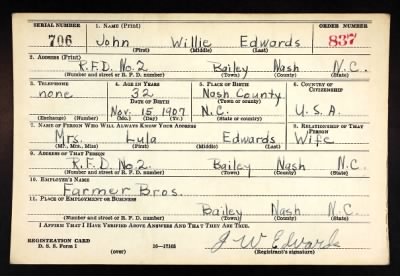 SERIAL NUMBER 1. NAME (Print) ORDER NUMBER
706 John Willie Edwards 837
(First) (Middle) (Last)
2. ADDRESS (Print)
R.F.D. No. 2 Bailey Nash N.C.
(Number and street or R. F. D. number) (Town) (County) (State)
3. TELEPHONE 4. AGE IN YEARS 5. PLACE OF BIRTH 6. COUNTRY OF CITIZENSHIP
none 32 Nash County
DATE OF BIRTH (Town or county)
Nov. 15 1907 N.C. U.S.A.
(Exchange) (Number) (Mo.) (Day) (Yr.) (State or country)
7. NAME OF PERSON WHO WILL ALWAYS KNOW YOUR ADDRESS 8. RELATIONSHIP OF THAT PERSON
Mrs. Lula Edwards Wife
(Mr., Mrs., Miss) (First) (Middle) (Last)
9. ADDRESS OF THAT PERSON
R.F.D. No 2. Bailey Nash N.C.
(Number and street or R. F. D. number) (Town) (County) (State)
10. EMPLOYER'S NAME
Farmer Bros.
11. PLACE OF EMPLOYMENT OR BUSINESS
Bailey Nash N.C.
(Number and street or R. F. D. number) (Town) (County) (State)
I AFFIRM THAT I HAVE VERIFIED ABOVE ANSWERS AND THAT THEY ARE TRUE.
REGISTRATION CARD J W Edwards
D. S. S. Form 1 (over) 16—17105 (Registrant's signature)